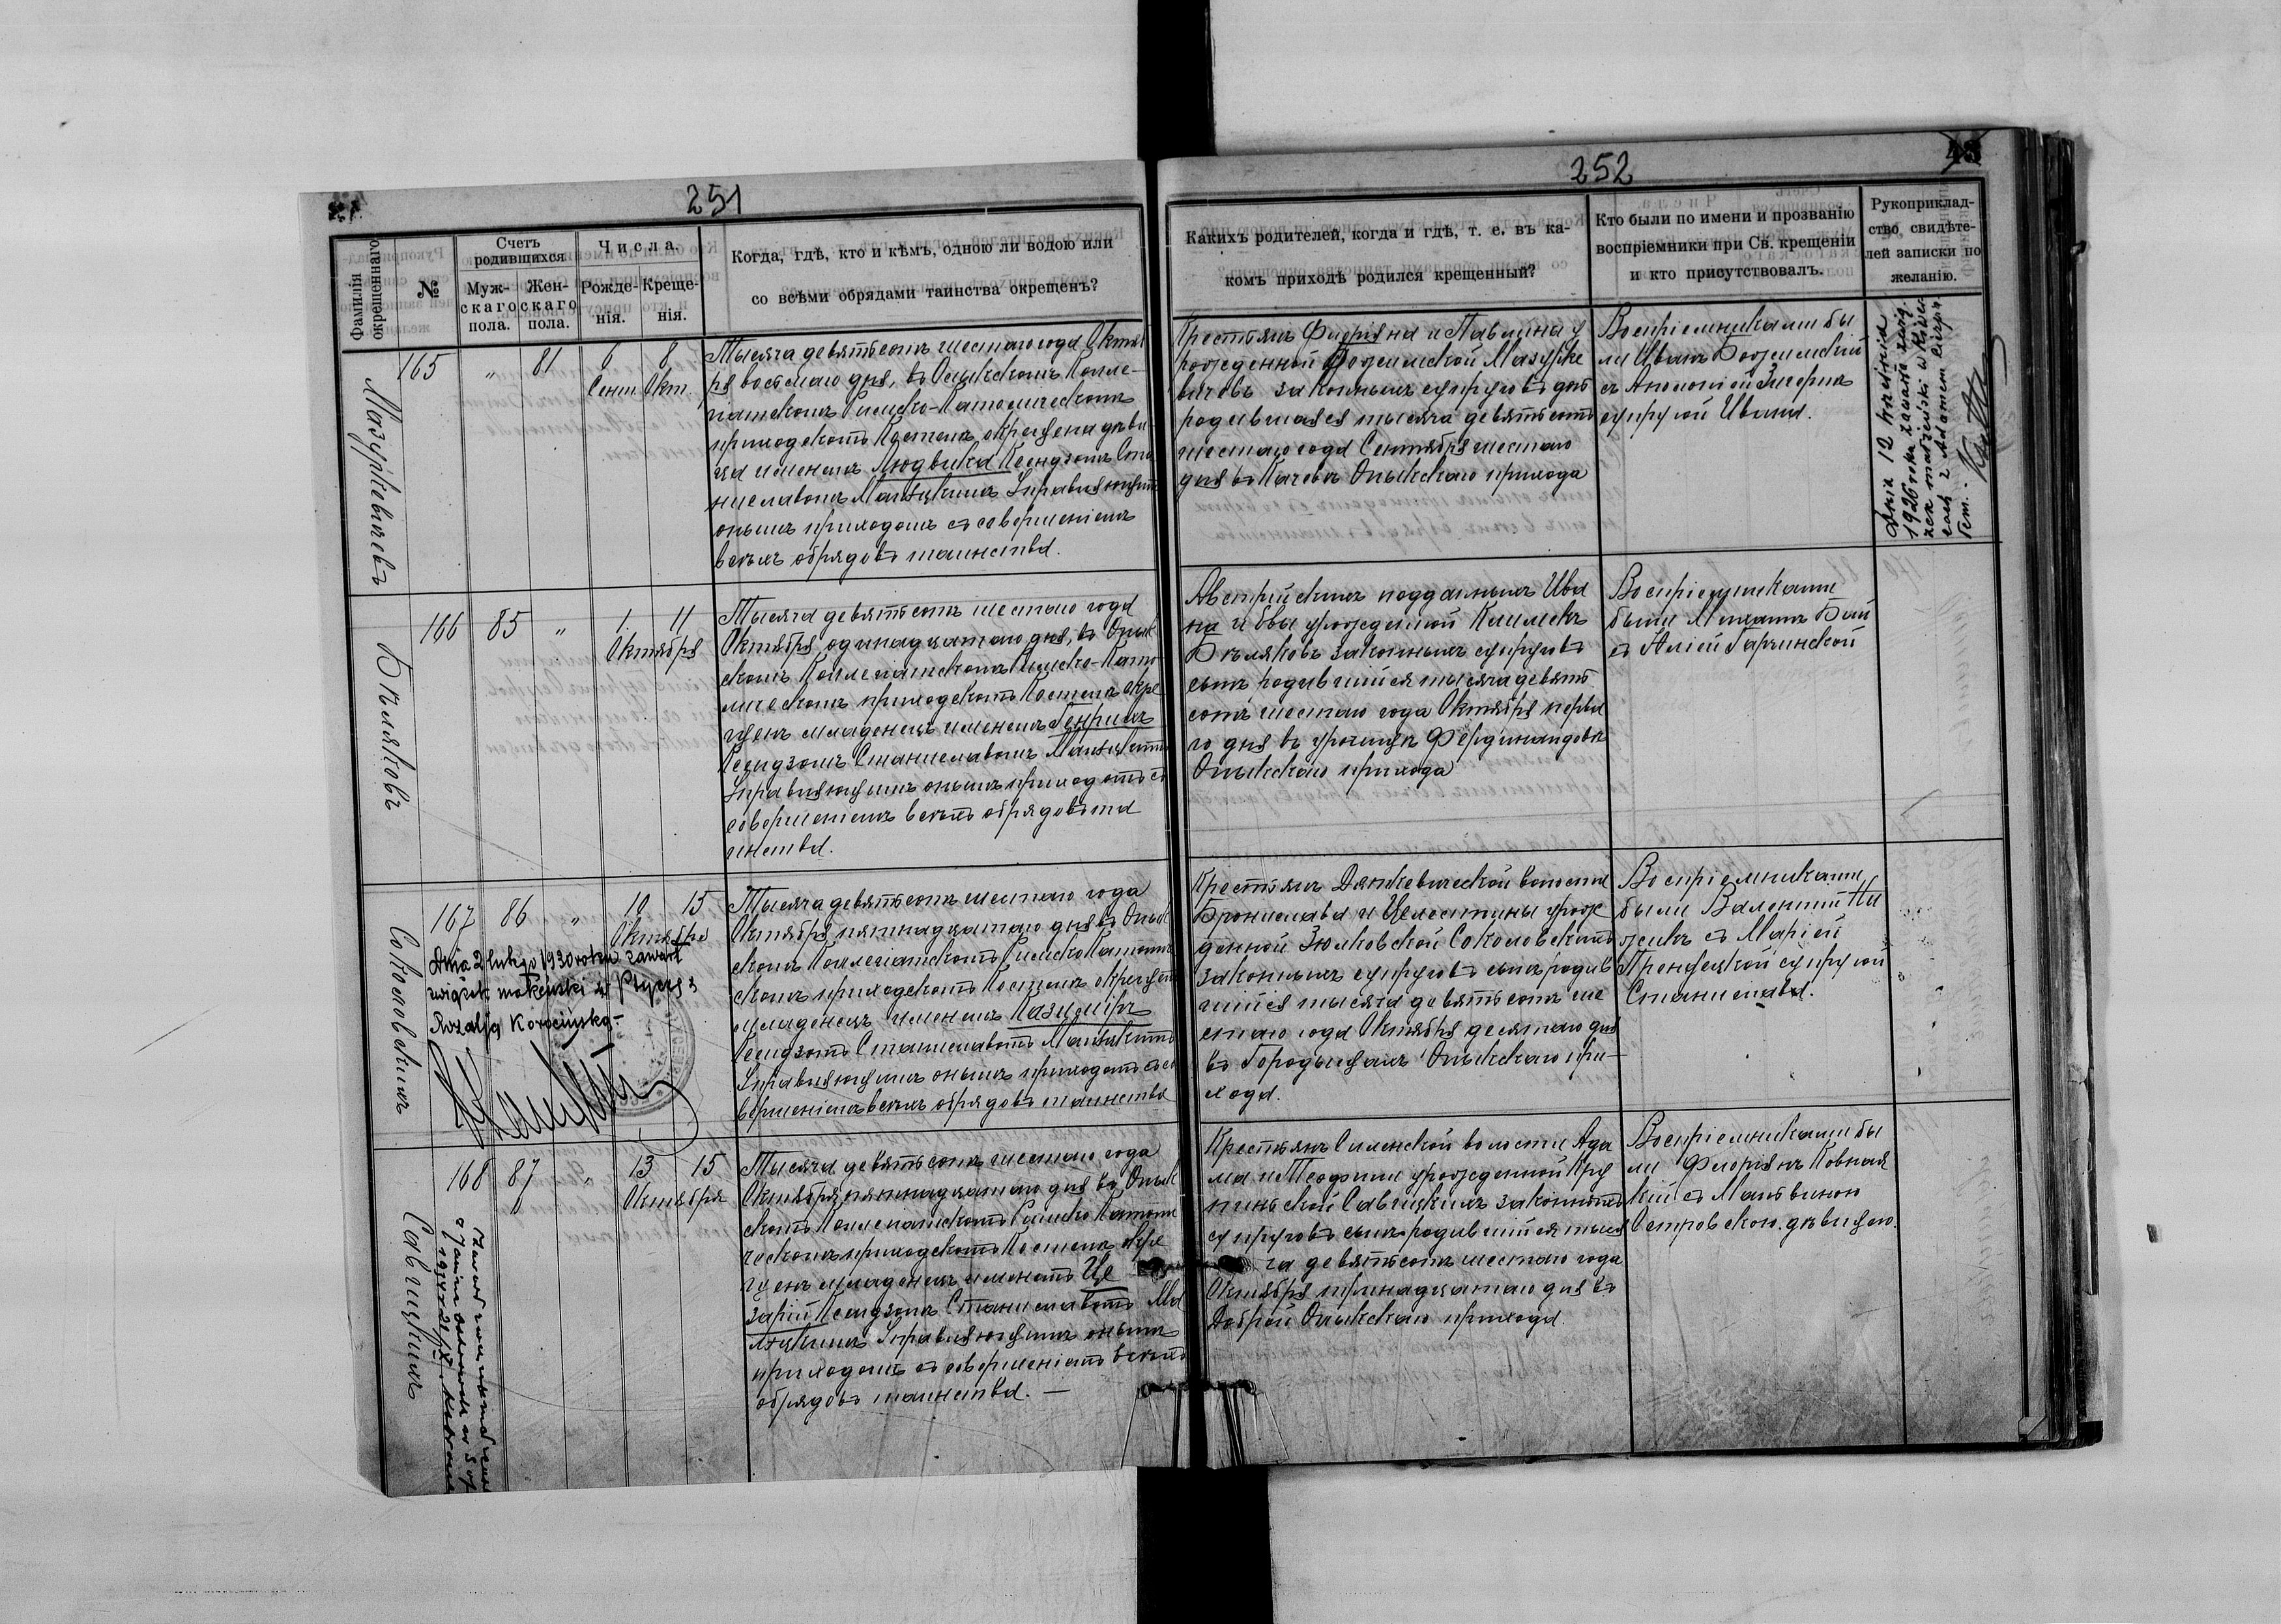 251
Фамилія окрещеннаго
№
Счетъ родившихся
Мужскаго пола.
Женскаго пола.
Числа.
Рожденія.
Крещенія.
Когда, гдѣ, кто и кѣмъ, одною ли водою или
со всѣми обрядами таинства окрещенъ?
Мазуркевичевъ
165 " 81 6 8
Сент. Окт.
Тысяча девятьсотъ шестаго года Октяб
ря восьмаго дня, въ Олыкскомъ Колле-
гіатскомъ Римско-Католическомъ
приходскомъ Костелѣ окрещена дѣви
ца именемъ Людвика Ксендзомъ Ста
ниславомъ
Управляющимъ
онымъ приходомъ съ совершеніемъ
всѣхъ обрядовъ таинства.
Бѣляковъ
166 85 " 1 11
Октября
Тысяча девятьсотъ шестаго года
Октября одинадцатаго дня, въ Олык
скомъ Коллегіатскомъ Римско-Като
лическомъ приходскомъ Костелѣ окре
щенъ младенецъ именемъ Генрихъ
Ксендзомъ Станиславомъ
Управляющимъ онымъ приходомъ съ
совершеніемъ всѣхъ обрядовъ та
инства.
Соколовскихъ
167 86 " 10 15
Октября
Dnia 2 lutego 1930 roku zawarł
związek małżeński w Ptyczy z
Rozalją
Тысяча девятьсотъ шестаго года
Октября пятнадцатаго дня въ Олык
скомъ Коллегіатскомъ Римско Католиче
скомъ приходскомъ Костелѣ окрещенъ
младенецъ именемъ Казиміръ
Ксендзомъ Станиславомъ
Управляющимъ онымъ приходомъ съ со
вершеніемъ всѣхъ обрядовъ таинства
Савицкихъ
168 87 " 13 15
Октября
Тысяча девятьсотъ шестаго года
Октября пятнадцатаго дня въ Олык
скомъ Коллегіатскомъ Римско Католи
ческомъ приходскомъ Костелѣ окре
щенъ младенецъ именемъ Це
зарій Ксендзомъ Станиславомъ
Управляющимъ онымъ
приходомъ съ совершеніемъ всѣхъ
обрядовъ таинства. —
252
Какихъ родителей, когда и гдѣ, т. е. въ ка-
комъ приходѣ родился крещенный?
Кто были по имени и прозванію
воспріемники при Св. крещеніи
и кто присутствовалъ.
Рукоприклад-
ство, свидѣте-
лей записки по
желанію.
Крестьянъ Флоріяна и Павлины у
рожденной Мазурке
вичовъ законныхъ супруговъ дочь
родившаяся тысяча девятьсотъ
шестаго года Сентября шестаго
дня въ Качевѣ Олыкскаго прихода
Воспріемниками бы
ли Иванъ
съ Аполоніей
супругой Ивана.
Dnia 12 września
1926 roku zawarła związ
Австрійскихъ подданныхъ Ива
на и Евы урожденной Климекъ
Бѣляковъ законныхъ супруговъ
сынъ родившійся тысяча девять
сотъ шестаго года Октября перва
го дня въ урочищѣ Фердинандовкѣ
Олыкскаго прихода
Воспріемниками
были Михаилъ
съ Юліей
Крестьянъ Дятковичской волости
Бронислава и Целестины урож
денной Зюлковской Соколовскихъ
законныхъ супруговъ сынъ родив
шійся тысяча девятьсотъ ше
стаго года Октября десятаго дня
въ Городищахъ Олыкскаго при-
хода.
Воспріемниками
были Валентій
съ Маріей
супругой
Станислава.
Крестьянъ Силенской волости Ада
ма и Теофили урожденной Кру
пиньской Савицкихъ законныхъ
супруговъ сынъ родившійся тыся
ча девятьсотъ шестаго года
Октября тринадцатаго дня въ
Доброй Олыкскаго прихода.
Воспріемниками бы
ли Флоріянъ
съ Мальвиною
Островскою дѣвицею.